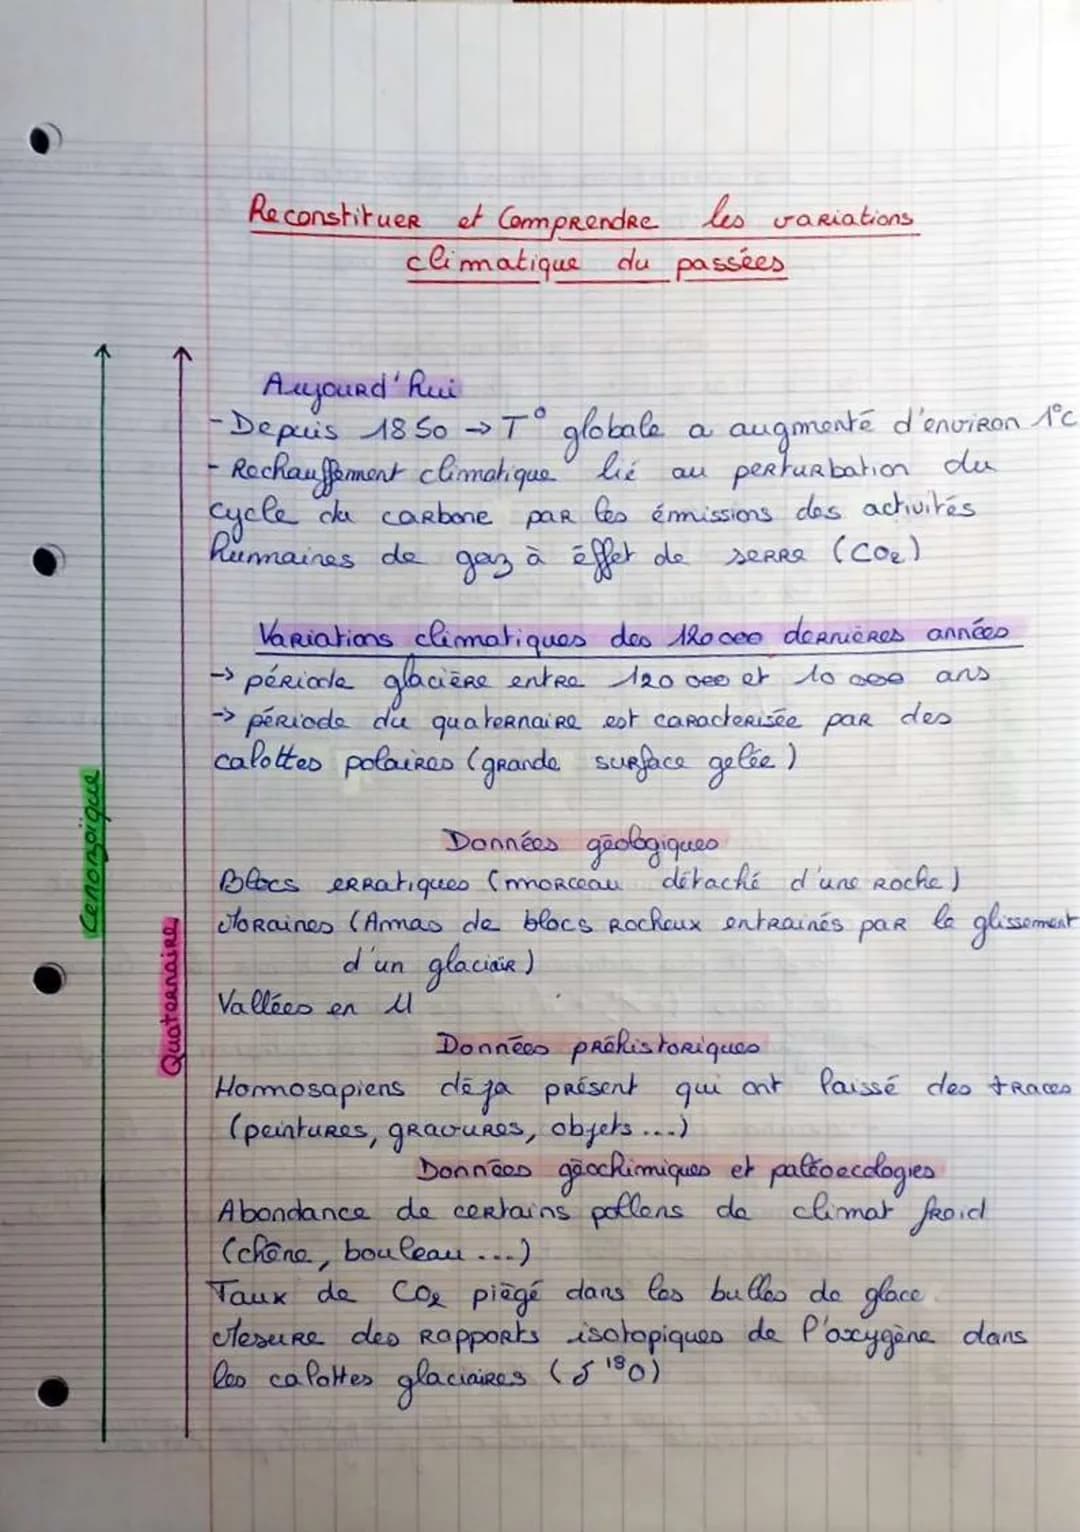 Reconstituer et Comprendre les variations
climatique du passées
Aujourd'hui
- Depuis 1850 → T° globale a augmenté d'environ 1°C
- Rechauffement climatique lié au perturbation du
cycle du carbone par les émissions des activités
humaines de gaz à éffet de serre (CO2)
Variations climatiques des 120 000 dernières années
→ période glacière entre 120 000 et 10 000 ans
→ période du quaternaire est caracterisée par des
calottes polaires (grande surface gelée)
Cenonzoïque
Quaternaire
Données géologiques
Blocs erratiques (morceau détaché d'une roche)
Moraines (Amas de blocs rocheux entrainés par le glissement
d'un glaciair)
Vallées en U
Données préhistoriques
Homosapiens déja présent qui ont laissé des traces
(peintures, gravures, objets ...)
Données géochimiques et paléoecologies
Abondance de certains pollens de climat froid
(chêne, bouleau ...)
Taux de CO2 piégé dans les bulles de glace
Mesure des rapports isotopiques de l'oxygène dans
les calottes glaciaires (δ 18O)